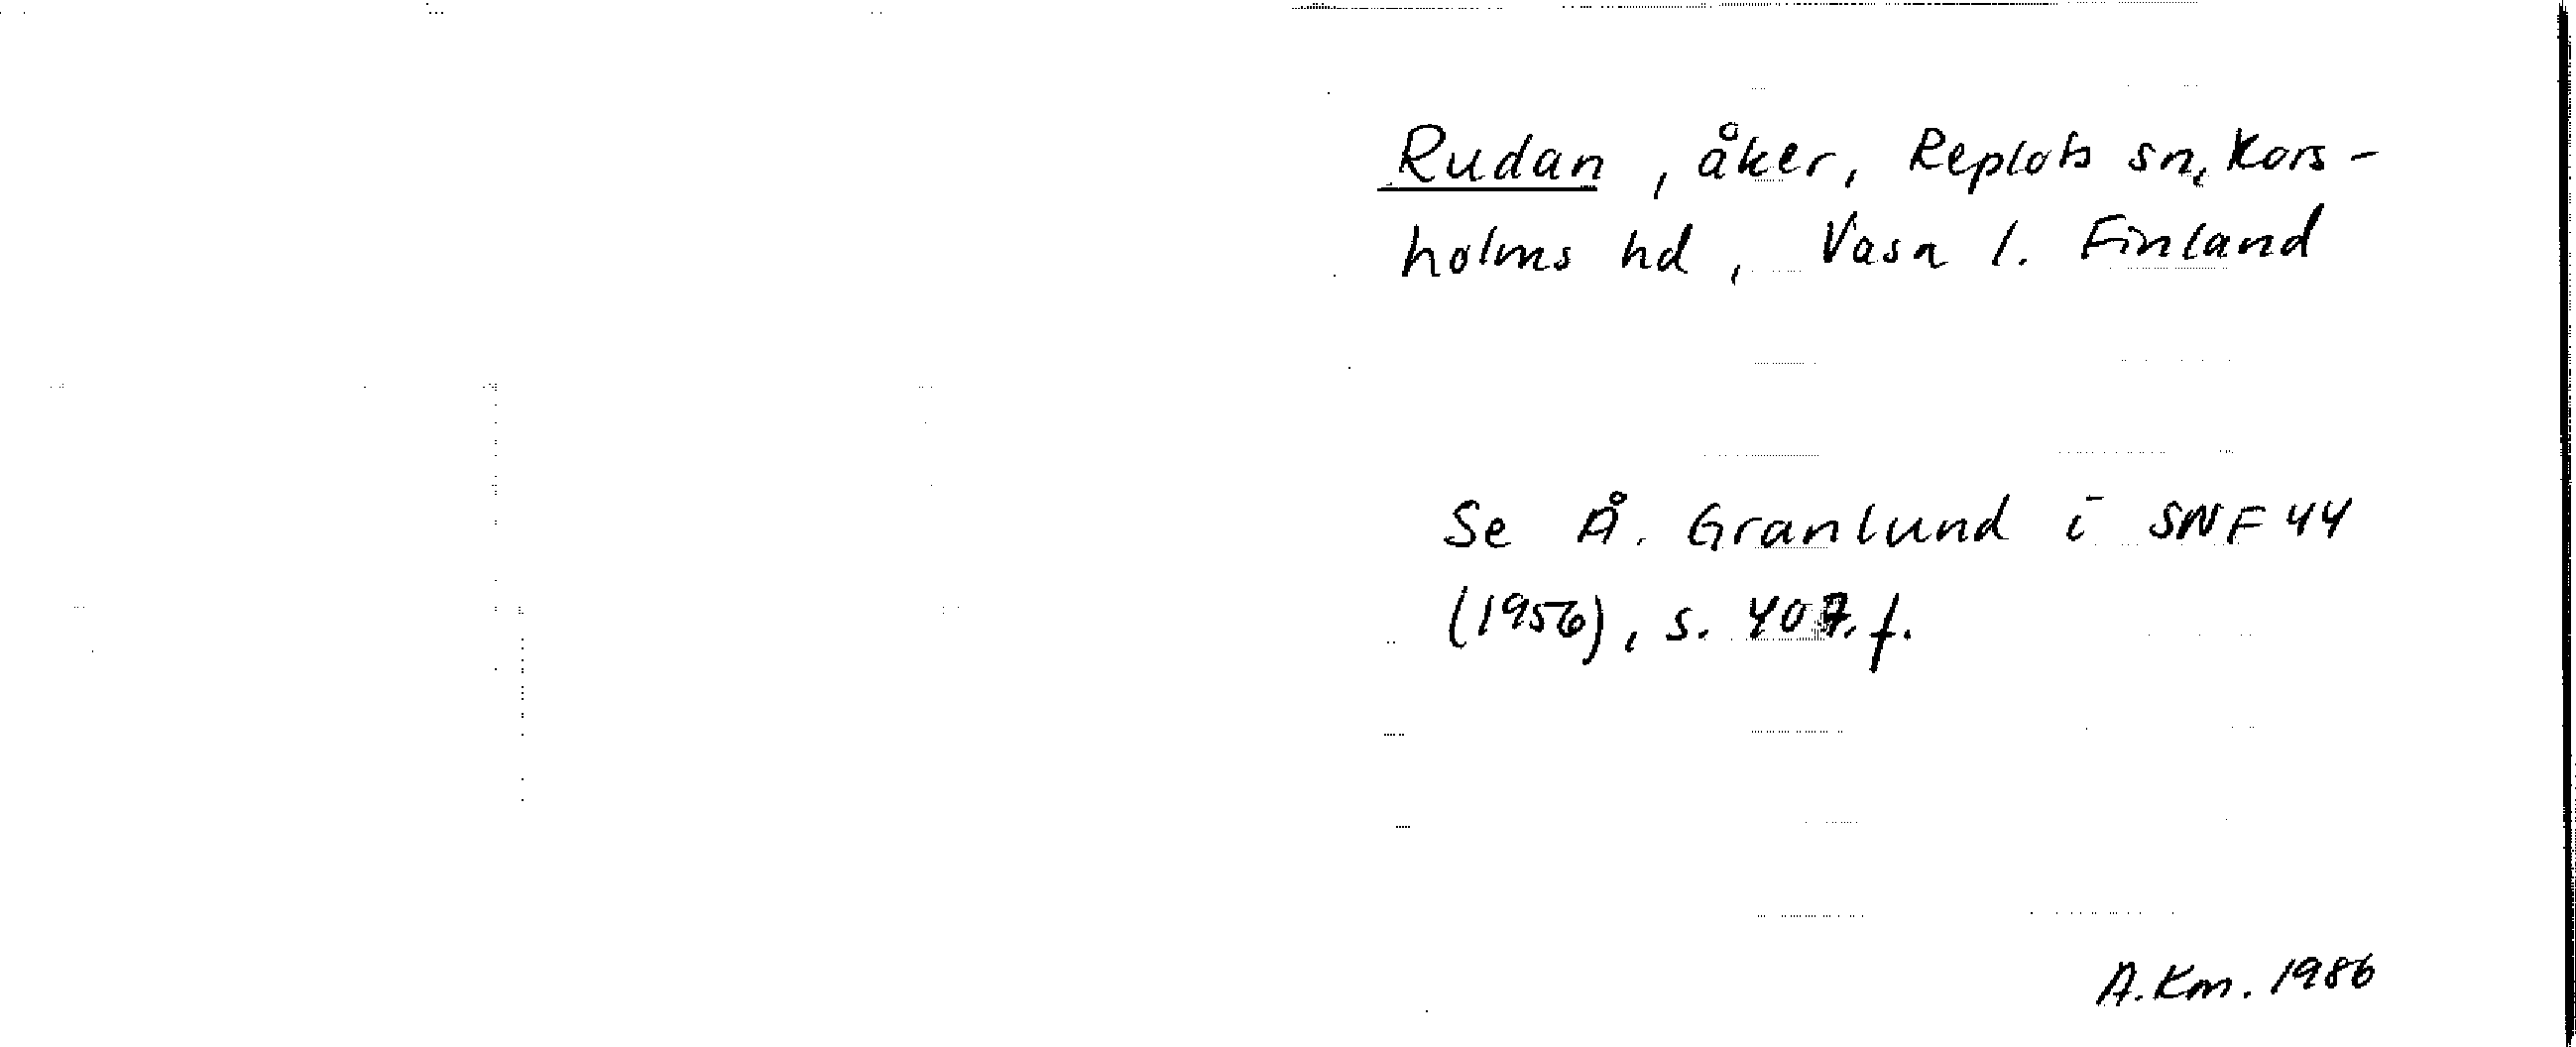 Rudan, åker, Replots sn, Kors-
holms hd, Vasa l. Finland
Se Å. Granlund i SNF 44
(1956), s. 407 f.
A. Km. 1986